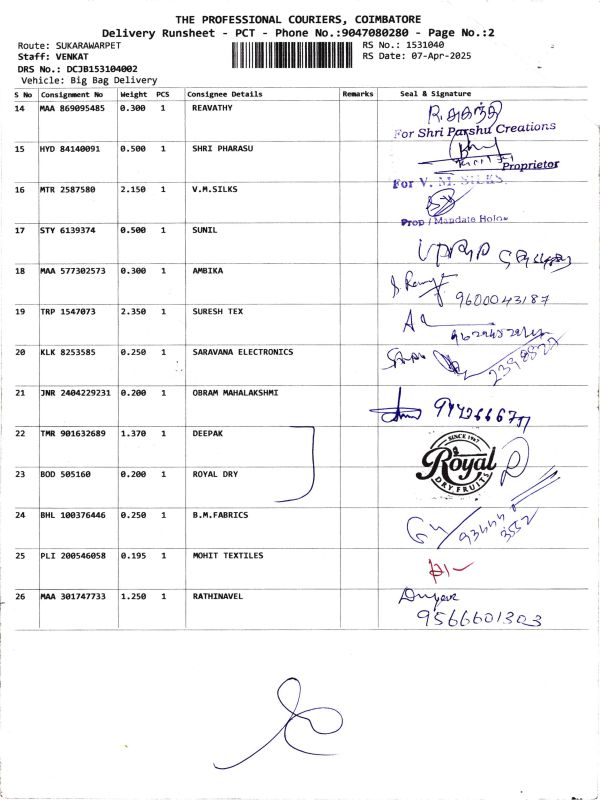 THE PROFESSIONAL COURIERS, COIMBATORE
Delivery Runsheet - PCT - Phone No.:9047080280 - Page No.:2
Route: SUKARAWARPET RS No.: 1531040
Staff: VENKAT RS Date: 07-Apr-2025
DRS No.: DCJB153104002
Vehicle: Big Bag Delivery
S No Consignment No Weight PCS Consignee Details Remarks Seal & Signature
14 MAA 869095485 0.300 1 REAVATHY
For Shri Parshu Creations
15 HYD 84140091 0.500 1 SHRI PHARASU
Proprietor
For V. M. SILKS
16 MTR 2587580 2.150 1 V.M.SILKS
Prop / Mandate Holder
17 STY 6139374 0.500 1 SUNIL
18 MAA 577302573 0.300 1 AMBIKA
9600043187
19 TRP 1547073 2.350 1 SURESH TEX
20 KLK 8253585 0.250 1 SARAVANA ELECTRONICS
21 JNR 2404229231 0.200 1 OBRAM MAHALAKSHMI
22 TMR 901632689 1.370 1 DEEPAK
SINCE 1967
Royal
DRY FRUITS
23 BOD 505160 0.200 1 ROYAL DRY
24 BHL 100376446 0.250 1 B.M.FABRICS
93444
3552
25 PLI 200546058 0.195 1 MOHIT TEXTILES
26 MAA 301747733 1.250 1 RATHINAVEL
9566601303